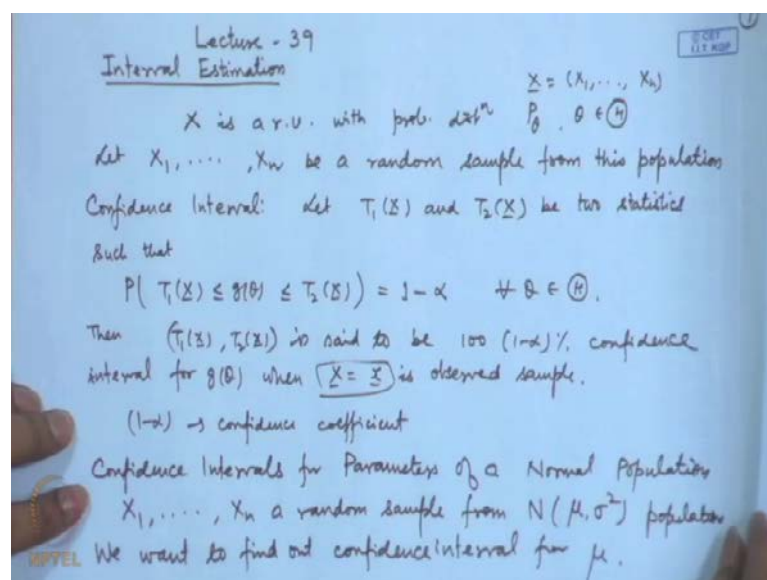 Lecture - 39
Interval Estimation
© CET
I.I.T. KGP
X̲ = (X₁,..., Xₙ)
X is a r.v. with prob. distⁿ P_θ, θ ∈ Ⓗ
Let X₁,....,Xₙ be a random sample from this population
Confidence Interval: Let T₁(X̲) and T₂(X̲) be two statistics
such that
P( T₁(X̲) ≤ g(θ) ≤ T₂(X̲)) = 1-α ∀ θ ∈ Ⓗ.
Then (T₁(x̲), T₂(x̲)) is said to be 100 (1-α)% confidence
interval for g(θ) when X̲ = x̲ is observed sample.
(1-α) → confidence coefficient
Confidence Intervals for Parameters of a Normal Population
X₁,...., Xₙ a random sample from N(μ,σ²) population
We want to find out confidence interval for μ.
NPTEL